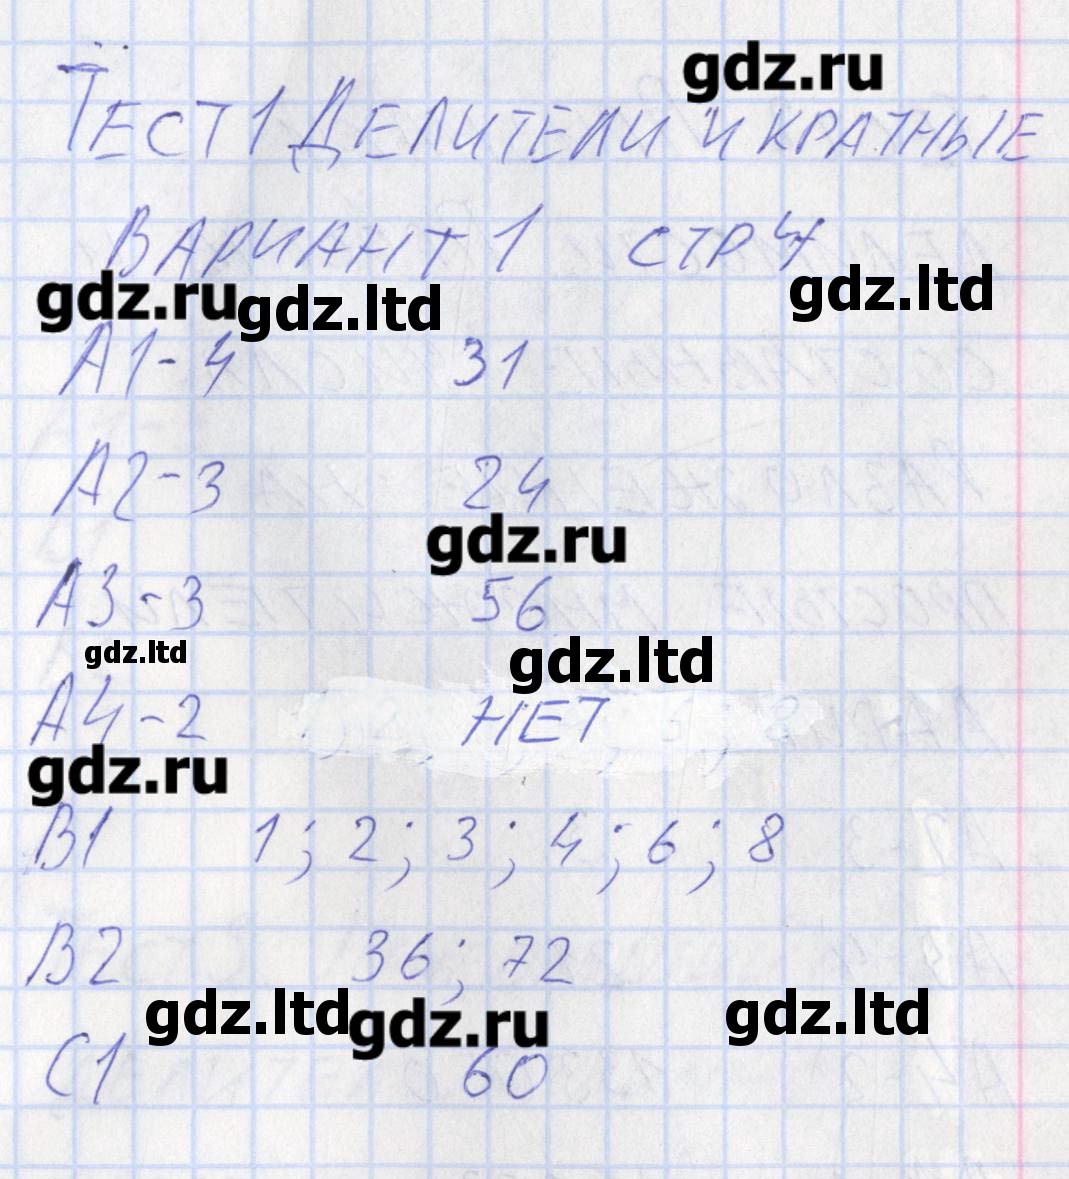 gdz.ru
ТЕСТ 1 ДЕЛИТЕЛИ И КРАТНЫЕ
ВАРИАНТ 1 СТР 4
gdz.ru gdz.ltd gdz.ltd
А1-4 31
А2-3 24
gdz.ru
А3-3 56
gdz.ltd gdz.ltd
А4-2 НЕТ
gdz.ru
В1 1; 2; 3; 4; 6; 8
В2 36; 72
gdz.ltd gdz.ru gdz.ltd
С1 60